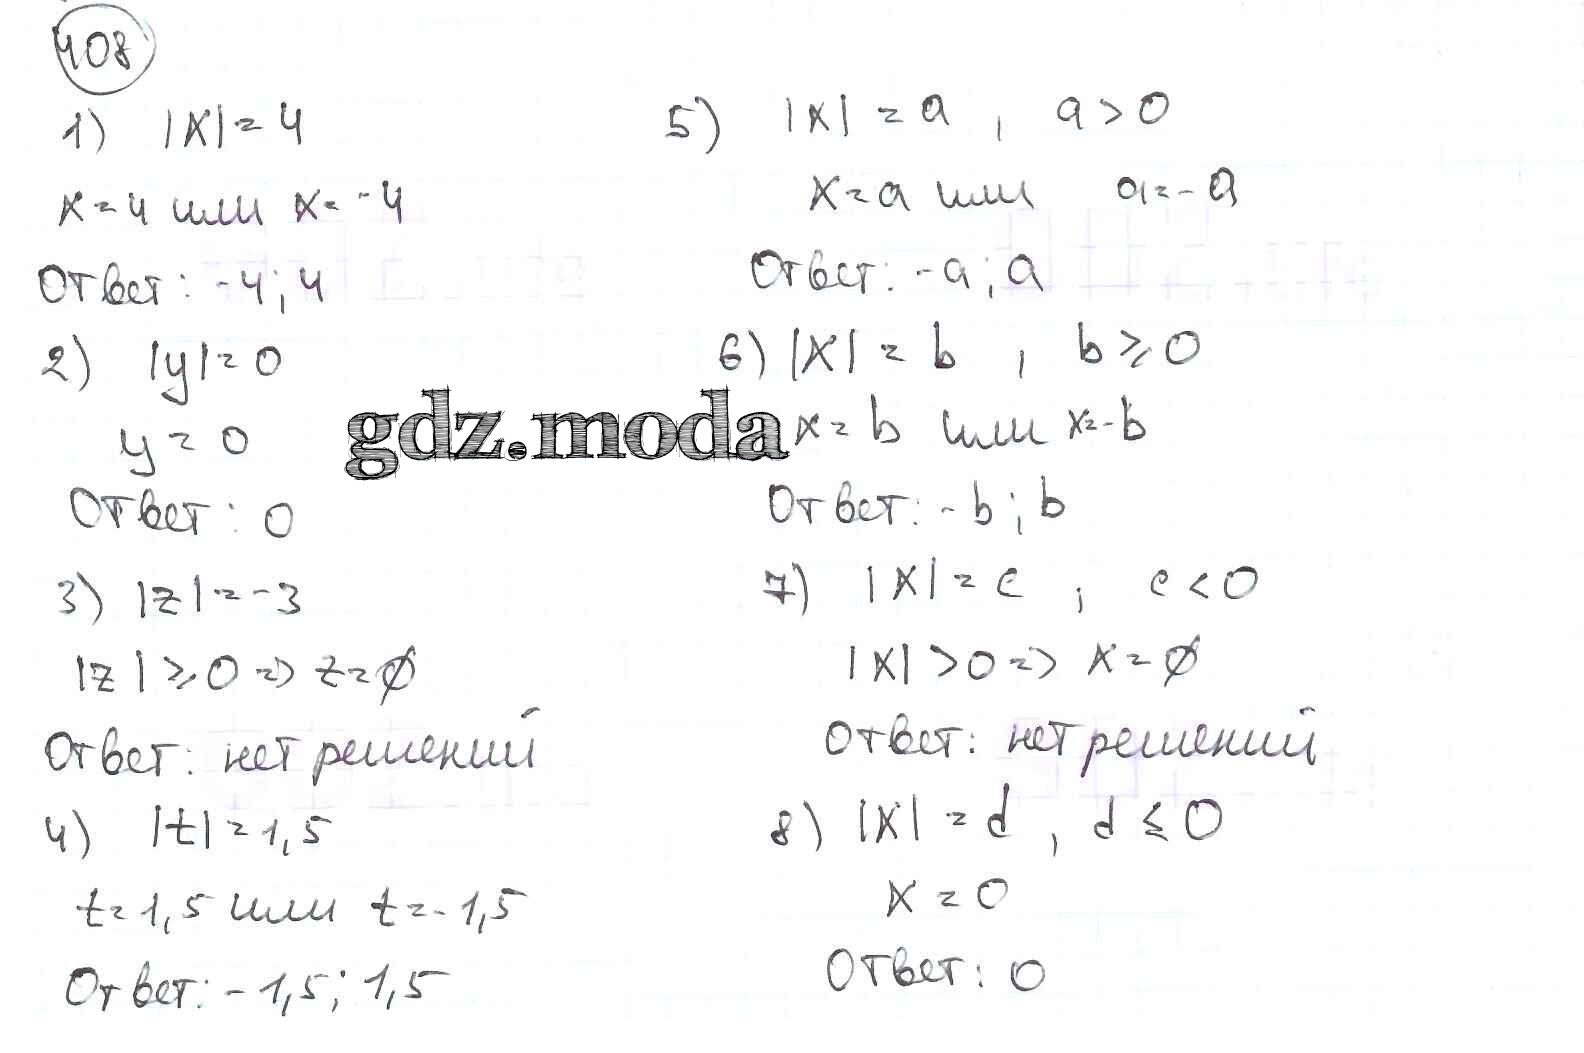 408
1) |x| = 4
x = 4 или x = -4
Ответ: -4; 4
2) |y| = 0
y = 0
Ответ: 0
3) |z| = -3
|z| ⩾ 0 => z = ∅
Ответ: нет решений
4) |t| = 1,5
t = 1,5 или t = -1,5
Ответ: -1,5; 1,5
gdz.moda
5) |x| = a, a > 0
x = a или a = -a
Ответ: -a; a
6) |x| = b, b ⩾ 0
x = b или x = -b
Ответ: -b; b
7) |x| = c; c < 0
|x| > 0 => x = ∅
Ответ: нет решений
8) |x| = d, d ≤ 0
x = 0
Ответ: 0